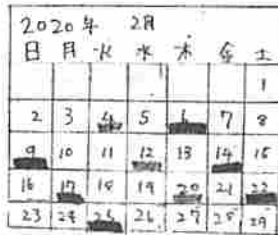 2020年 2月
日 月 火 水 木 金 土
1
2 3 4 5 6 7 8
9 10 11 12 13 14 15
16 17 18 19 20 21 22
23 24 25 26 27 28 29